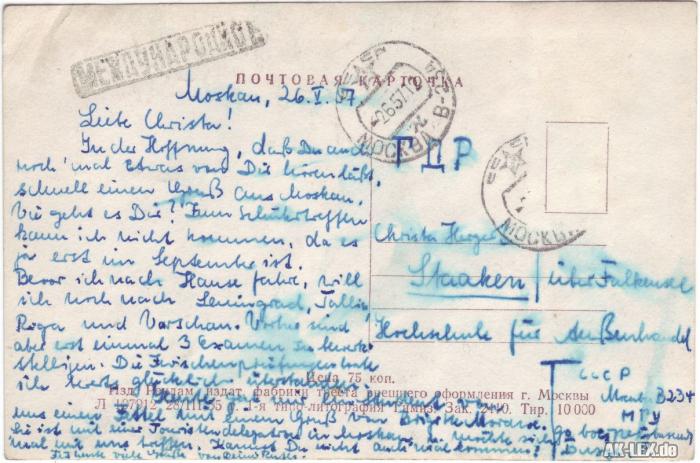 МЕЖДУНАРОДНОЕ
ПОЧТОВАЯ КАРТОЧКА
МОСКВА В-234
26557
МОСКВА
Moskau, 26.V.57
Liebe Christa!
In der Hoffnung, daß Du auch
noch 'mal Etwas von Dir hören läßt,
schnell einen Gruß aus Moskau.
Wie geht es Dir? Zum Schultreffen
kann ich nicht kommen, da es
ja erst im September ist.
Bevor ich nach Hause fahre, will
ich noch nach Leningrad, Tallin
Riga und Warschau. Vorher sind
aber erst einmal 3 Examen zu
Die Zwischenprüfungen habe
ich glücklich überstanden
einen Gruß von Brigitte
Sie ist mit einer Touristendelegation in Moskau u. möchte sich
mal mit uns treffen. Kannst Du nicht auch mal kommen?
viele Grüße von
ГДР
Christa
Staaken / über Falkensee
Hochschule für Außenhandel
СССР
Москва В 234
МГУ
Цена 75 коп.
Изд. издат. фабрики треста внешнего оформления г. Москвы
Л 107912, 28/III-55 г. 1-я типо-литография Зак. 2410. Тир. 10 000
AK-LEX.de